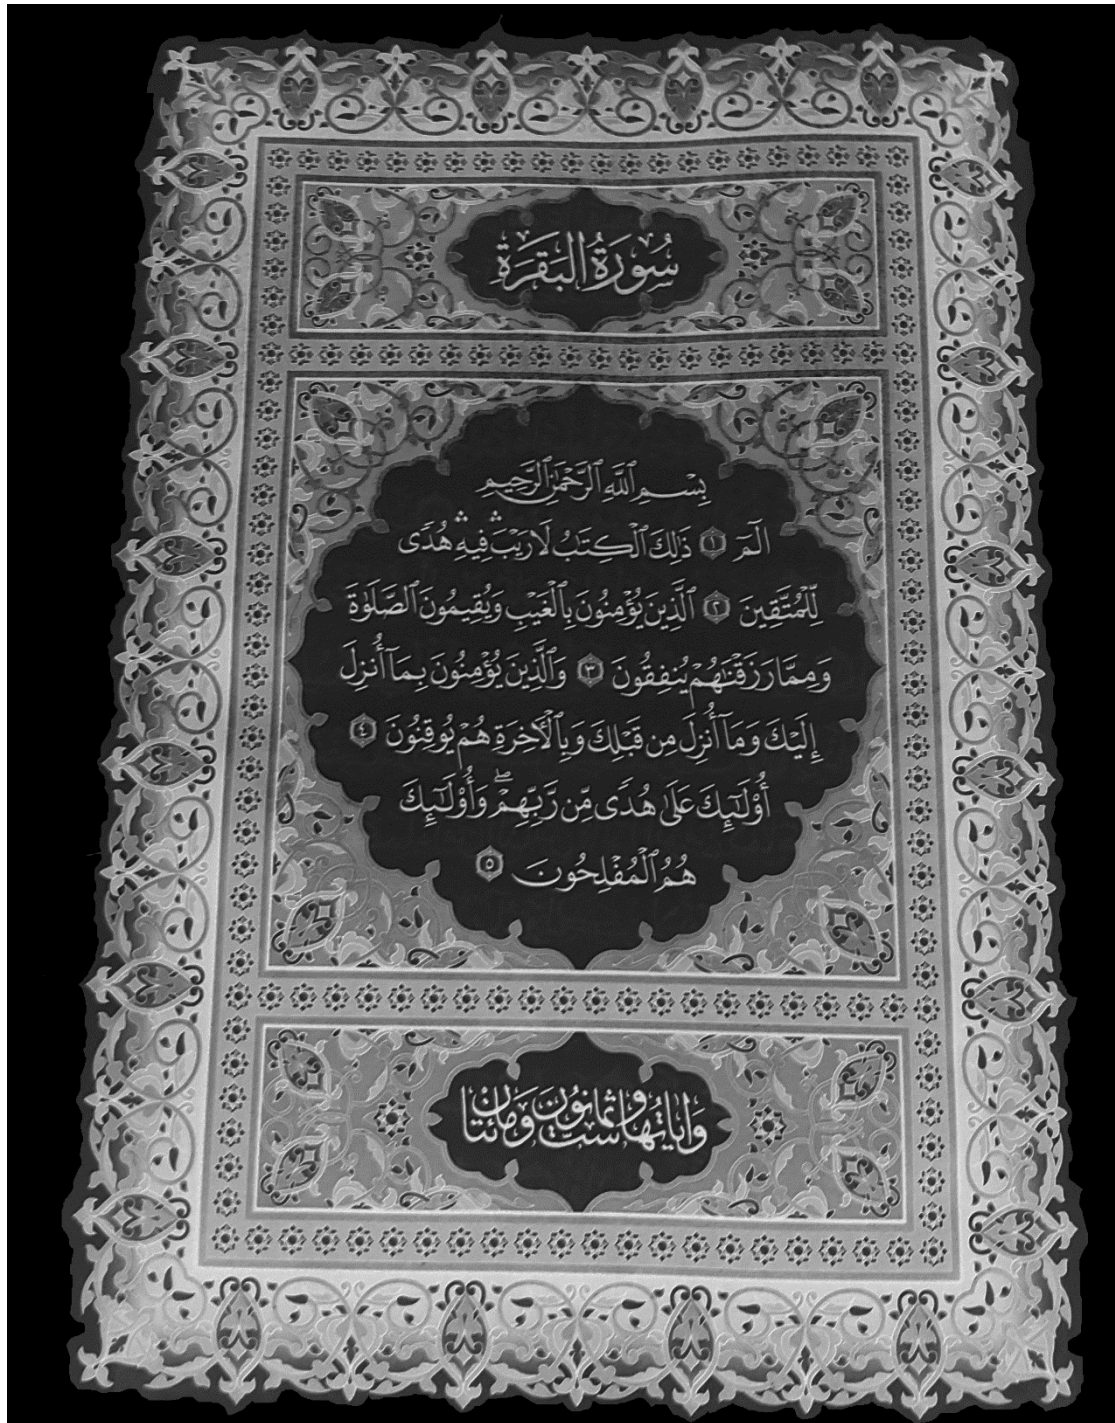 سُورَةُ البَقَرَةِ
بِسْمِ ٱللَّهِ ٱلرَّحْمَٰنِ ٱلرَّحِيمِ
الٓمٓ ۝١ ذَٰلِكَ ٱلْكِتَٰبُ لَا رَيْبَ ۛ فِيهِ ۛ هُدًى
لِّلْمُتَّقِينَ ۝٢ ٱلَّذِينَ يُؤْمِنُونَ بِٱلْغَيْبِ وَيُقِيمُونَ ٱلصَّلَوٰةَ
وَمِمَّا رَزَقْنَٰهُمْ يُنفِقُونَ ۝٣ وَٱلَّذِينَ يُؤْمِنُونَ بِمَآ أُنزِلَ
إِلَيْكَ وَمَآ أُنزِلَ مِن قَبْلِكَ وَبِٱلْأَخِرَةِ هُمْ يُوقِنُونَ ۝٤
أُو۟لَٰٓئِكَ عَلَىٰ هُدًى مِّن رَّبِّهِمْ ۖ وَأُو۟لَٰٓئِكَ
هُمُ ٱلْمُفْلِحُونَ ۝٥
وَآياتها ست وثمانون ومائتان